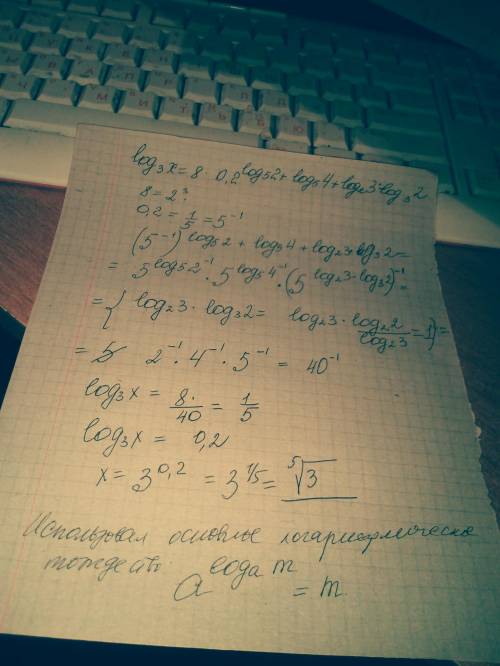 log₃x = 8 · 0,2^(log₅2 + log₅4 + log₂3·log₃2)
8 = 2³
0,2 = 1/5 = 5⁻¹
(5⁻¹)^(log₅2 + log₅4 + log₂3·log₃2) =
= 5^(log₅2⁻¹) · 5^(log₅4⁻¹) · (5^(log₂3·log₃2))⁻¹ =
= { log₂3 · log₃2 = log₂3 · log₂2/log₂3 = 1 } =
= 2⁻¹ · 4⁻¹ · 5⁻¹ = 40⁻¹
log₃x = 8·/40 = 1/5
log₃x = 0,2
x = 3^0,2 = 3^1/5 = ⁵√3
Использовал основные логарифмическое
тождество:
a^(log_a m) = m